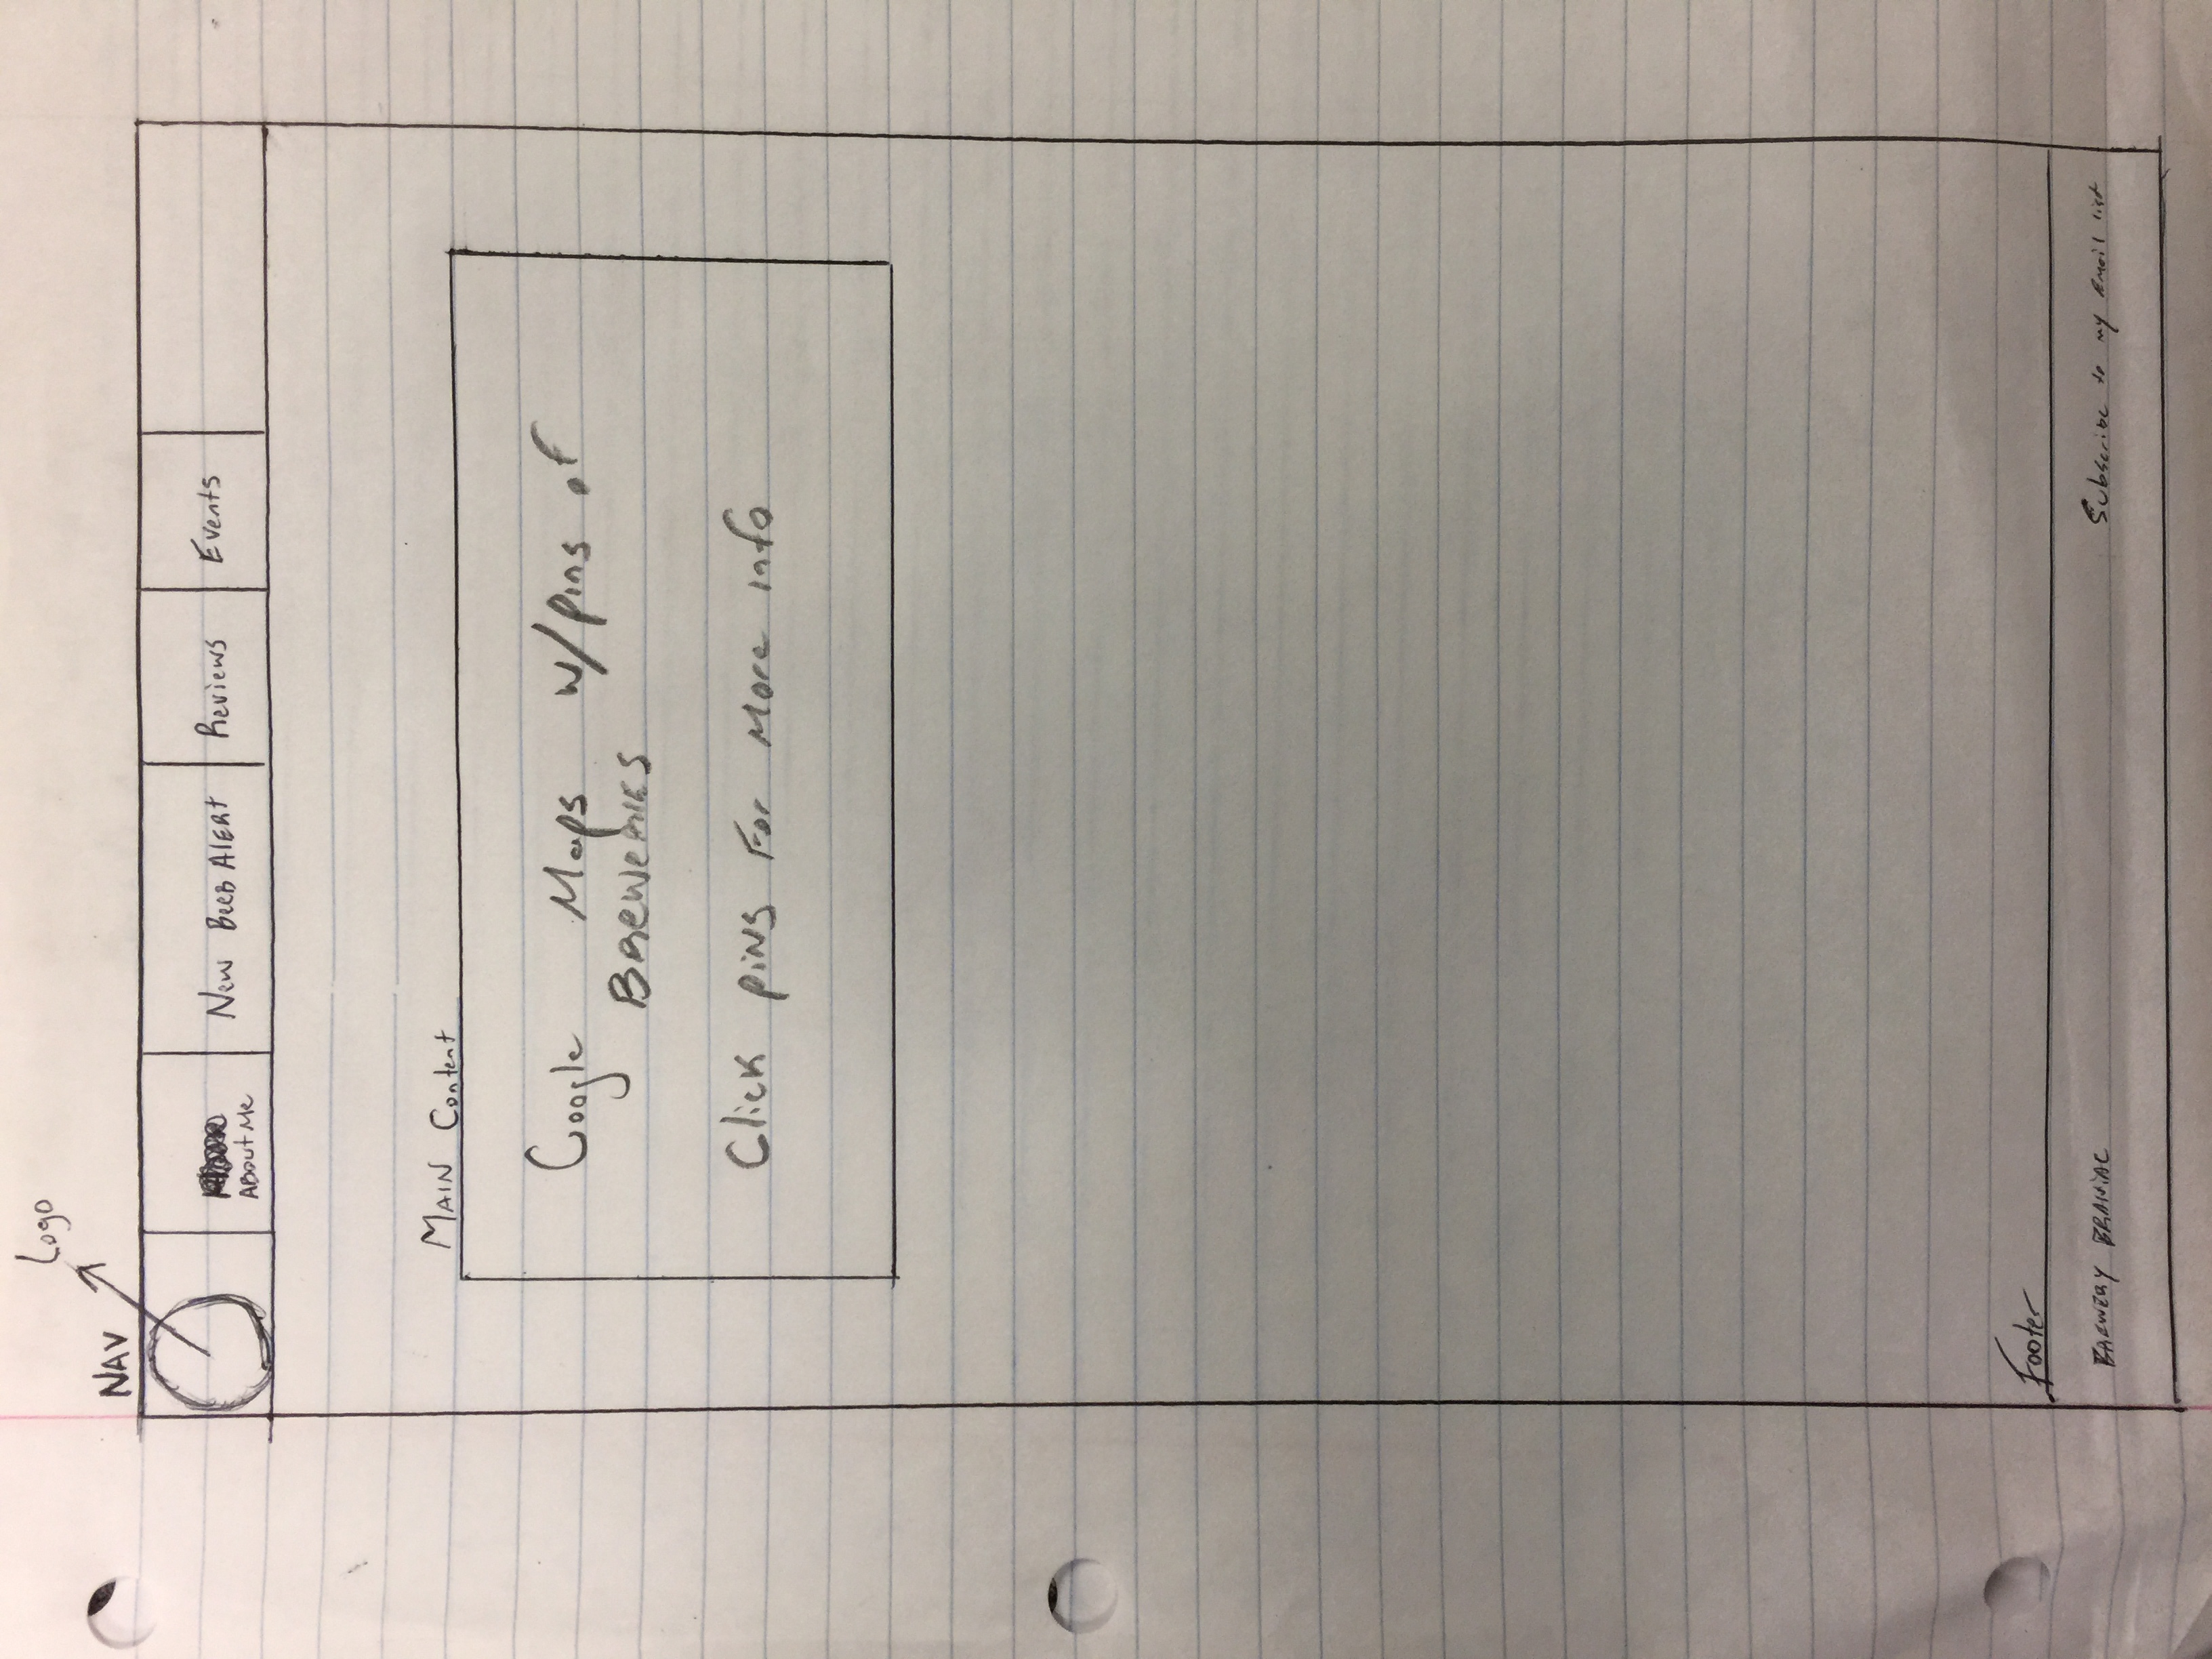 Logo
NAV
About Me
New Beer Alert
Reviews
Events
Main Content
Google Maps w/pins of
Breweries
Click pins for more info
Footer
Brewery Brainiac
Subscribe to my email list